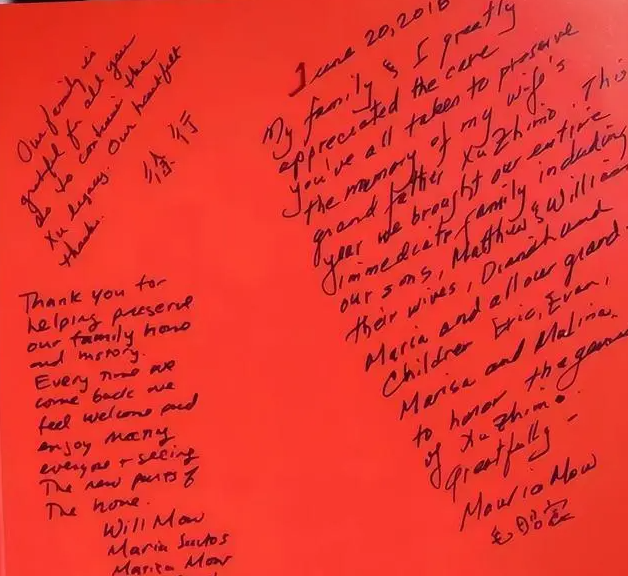 Our family is
grateful for all you
do to continue the
Xu legacy. Our heartfelt
thanks.
Thank you for
helping preserve
our family home
and history.
Every time we
come back we
feel welcome and
enjoy meeting
everyone + seeing
The new parts of
The home.
Will Mow
Maria Santos
Marisa Mow
June 20, 2018
My family & I greatly
appreciated the care
you've all taken to preserve
the memory of my wife's
grand father Xu Zhimo. This
year we brought our entire
immediate family including
our sons, Matthew & William
their wives, Dianah and
Maria and all our grand-
Children Eric, Evan,
Marisa and Malina.
to honor the genius
of Xu Zhimo.
Greatfully -
Mow